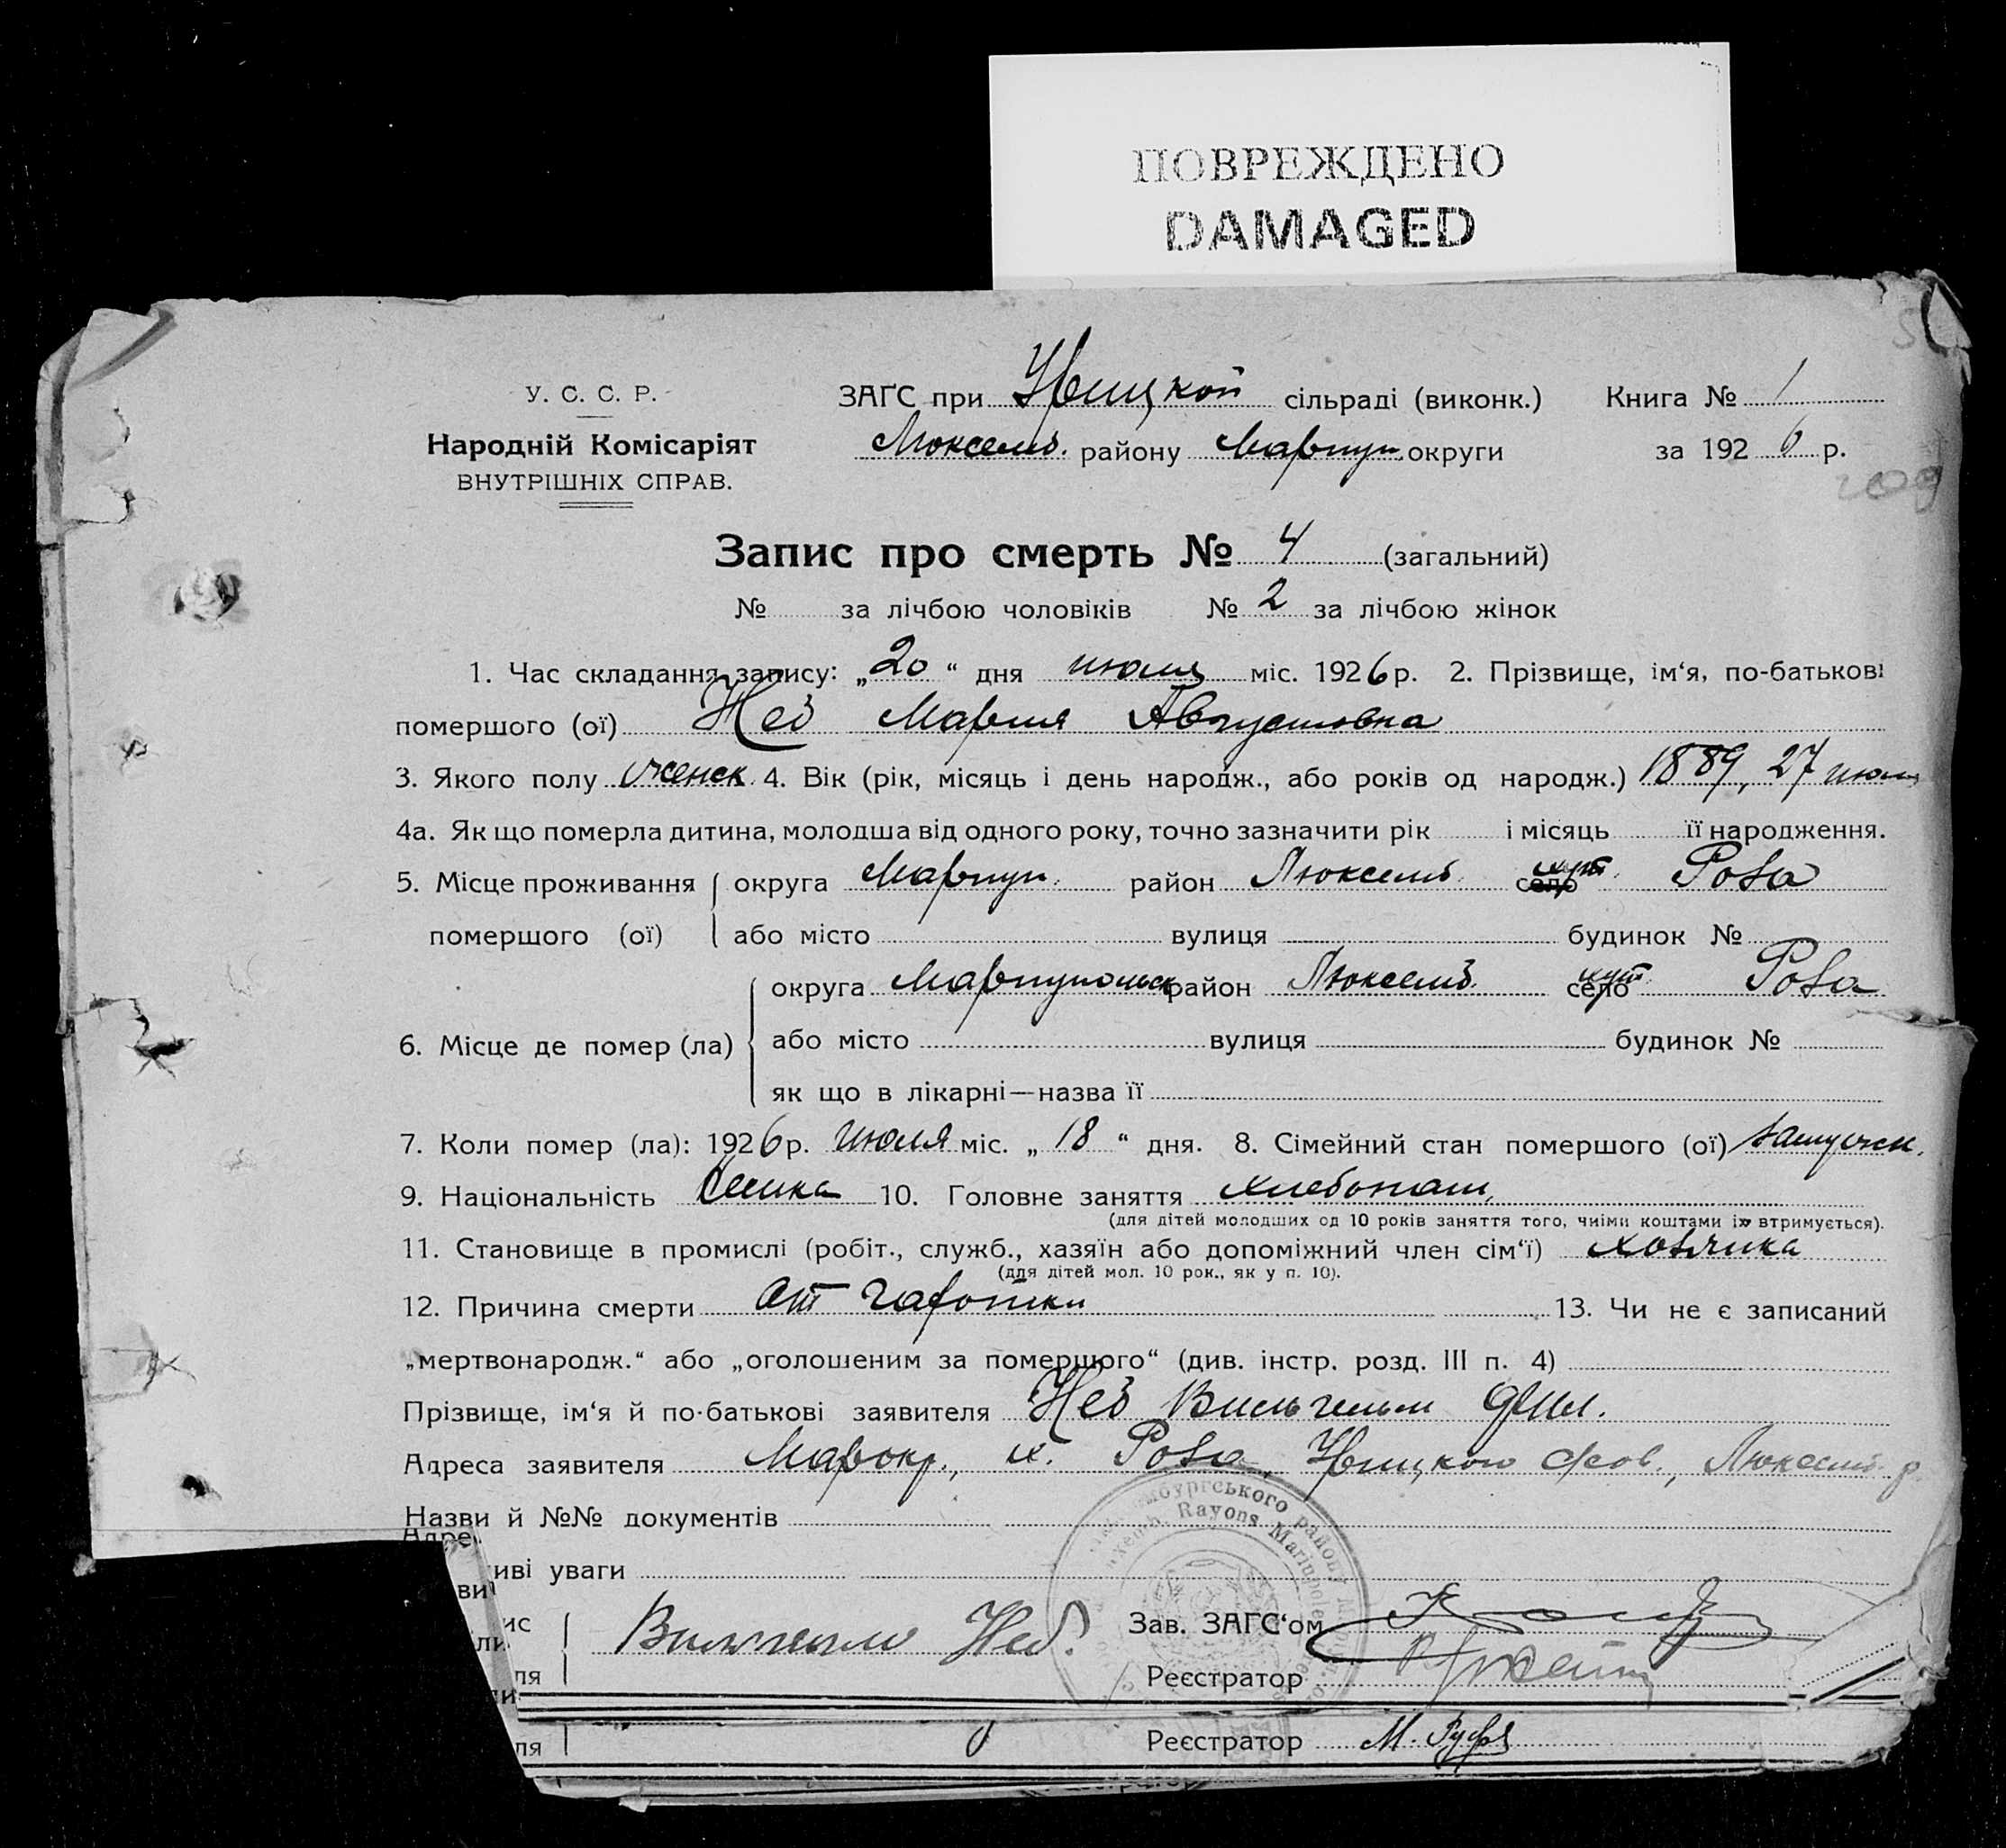 ПОВРЕЖДЕНО
DAMAGED
У. С. С. Р.
Народній Комісаріят
ВНУТРІШНІХ СПРАВ.
ЗАГС при сільраді (виконк.) Книга № 1
Люксемб. району Мариуп. округи за 1926 р.
Запис про смерть № 4 (загальний)
№ за лічбою чоловіків № 2 за лічбою жінок
1. Час складання запису: „20“ дня июля міс. 1926 р. 2. Прізвище, ім‘я, по-батькові
помершого (ої) Неб Мария Августовна
3. Якого полу женск. 4. Вік (рік, місяць і день народж., або років од народж.) 1889, 27 июля
4а. Як що померла дитина, молодша від одного року, точно зазначити рік і місяць її народження.
5. Місце проживання округа Мариуп. район Люксемб. село хут. Роза
помершого (ої) або місто вулиця будинок №
округа Мариупольск район Люксемб. село хут Роза
6. Місце де помер (ла) або місто вулиця будинок №
як що в лікарні—назва її
7. Коли помер (ла): 1926 р. июля міс. „18“ дня. 8. Сімейний стан помершого (ої) замужн.
9. Національність Немка 10. Головне заняття хлебопаш.
(для дітей молодших од 10 років заняття того, чиїми коштами їх втримується).
11. Становище в промислі (робіт., служб., хазяїн або допоміжний член сім‘ї) хозяйка
(для дітей мол. 10 рок., як у п. 10).
12. Причина смерти от чахотки 13. Чи не є записаний
„мертвонародж.“ або „оголошеним за помершого“ (див. інстр. розд. III п. 4)
Прізвище, ім‘я й по-батькові заявителя Неб Вильгельм
Адреса заявителя Мар. окр., х. Роза, Люксемб. р.
Назви й №№ документів
Адре
иві уваги
ви
ис
Вильгельм Неб. Зав. ЗАГС‘ом
ля
Реєстратор
ля
Реєстратор М.
мбургського району
Rayons Mariupoler